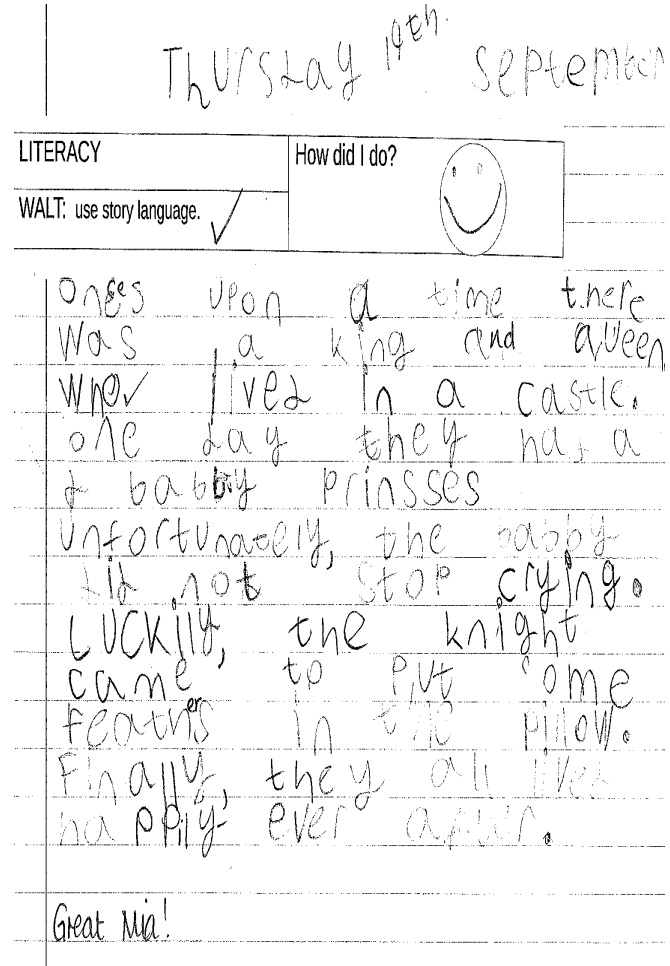 Thursday 19th. September
LITERACY
How did I do?
WALT: use story language.
Onces upon a time there
was a king and aqueen
who lived in a castle.
one day they had a
babby prinsses
unfortunately, the babby
did not stop crying.
LUCKily, the knight
came to put some
feathers in the pillow.
Finally, they all lived
happily ever after.
Great Mia!